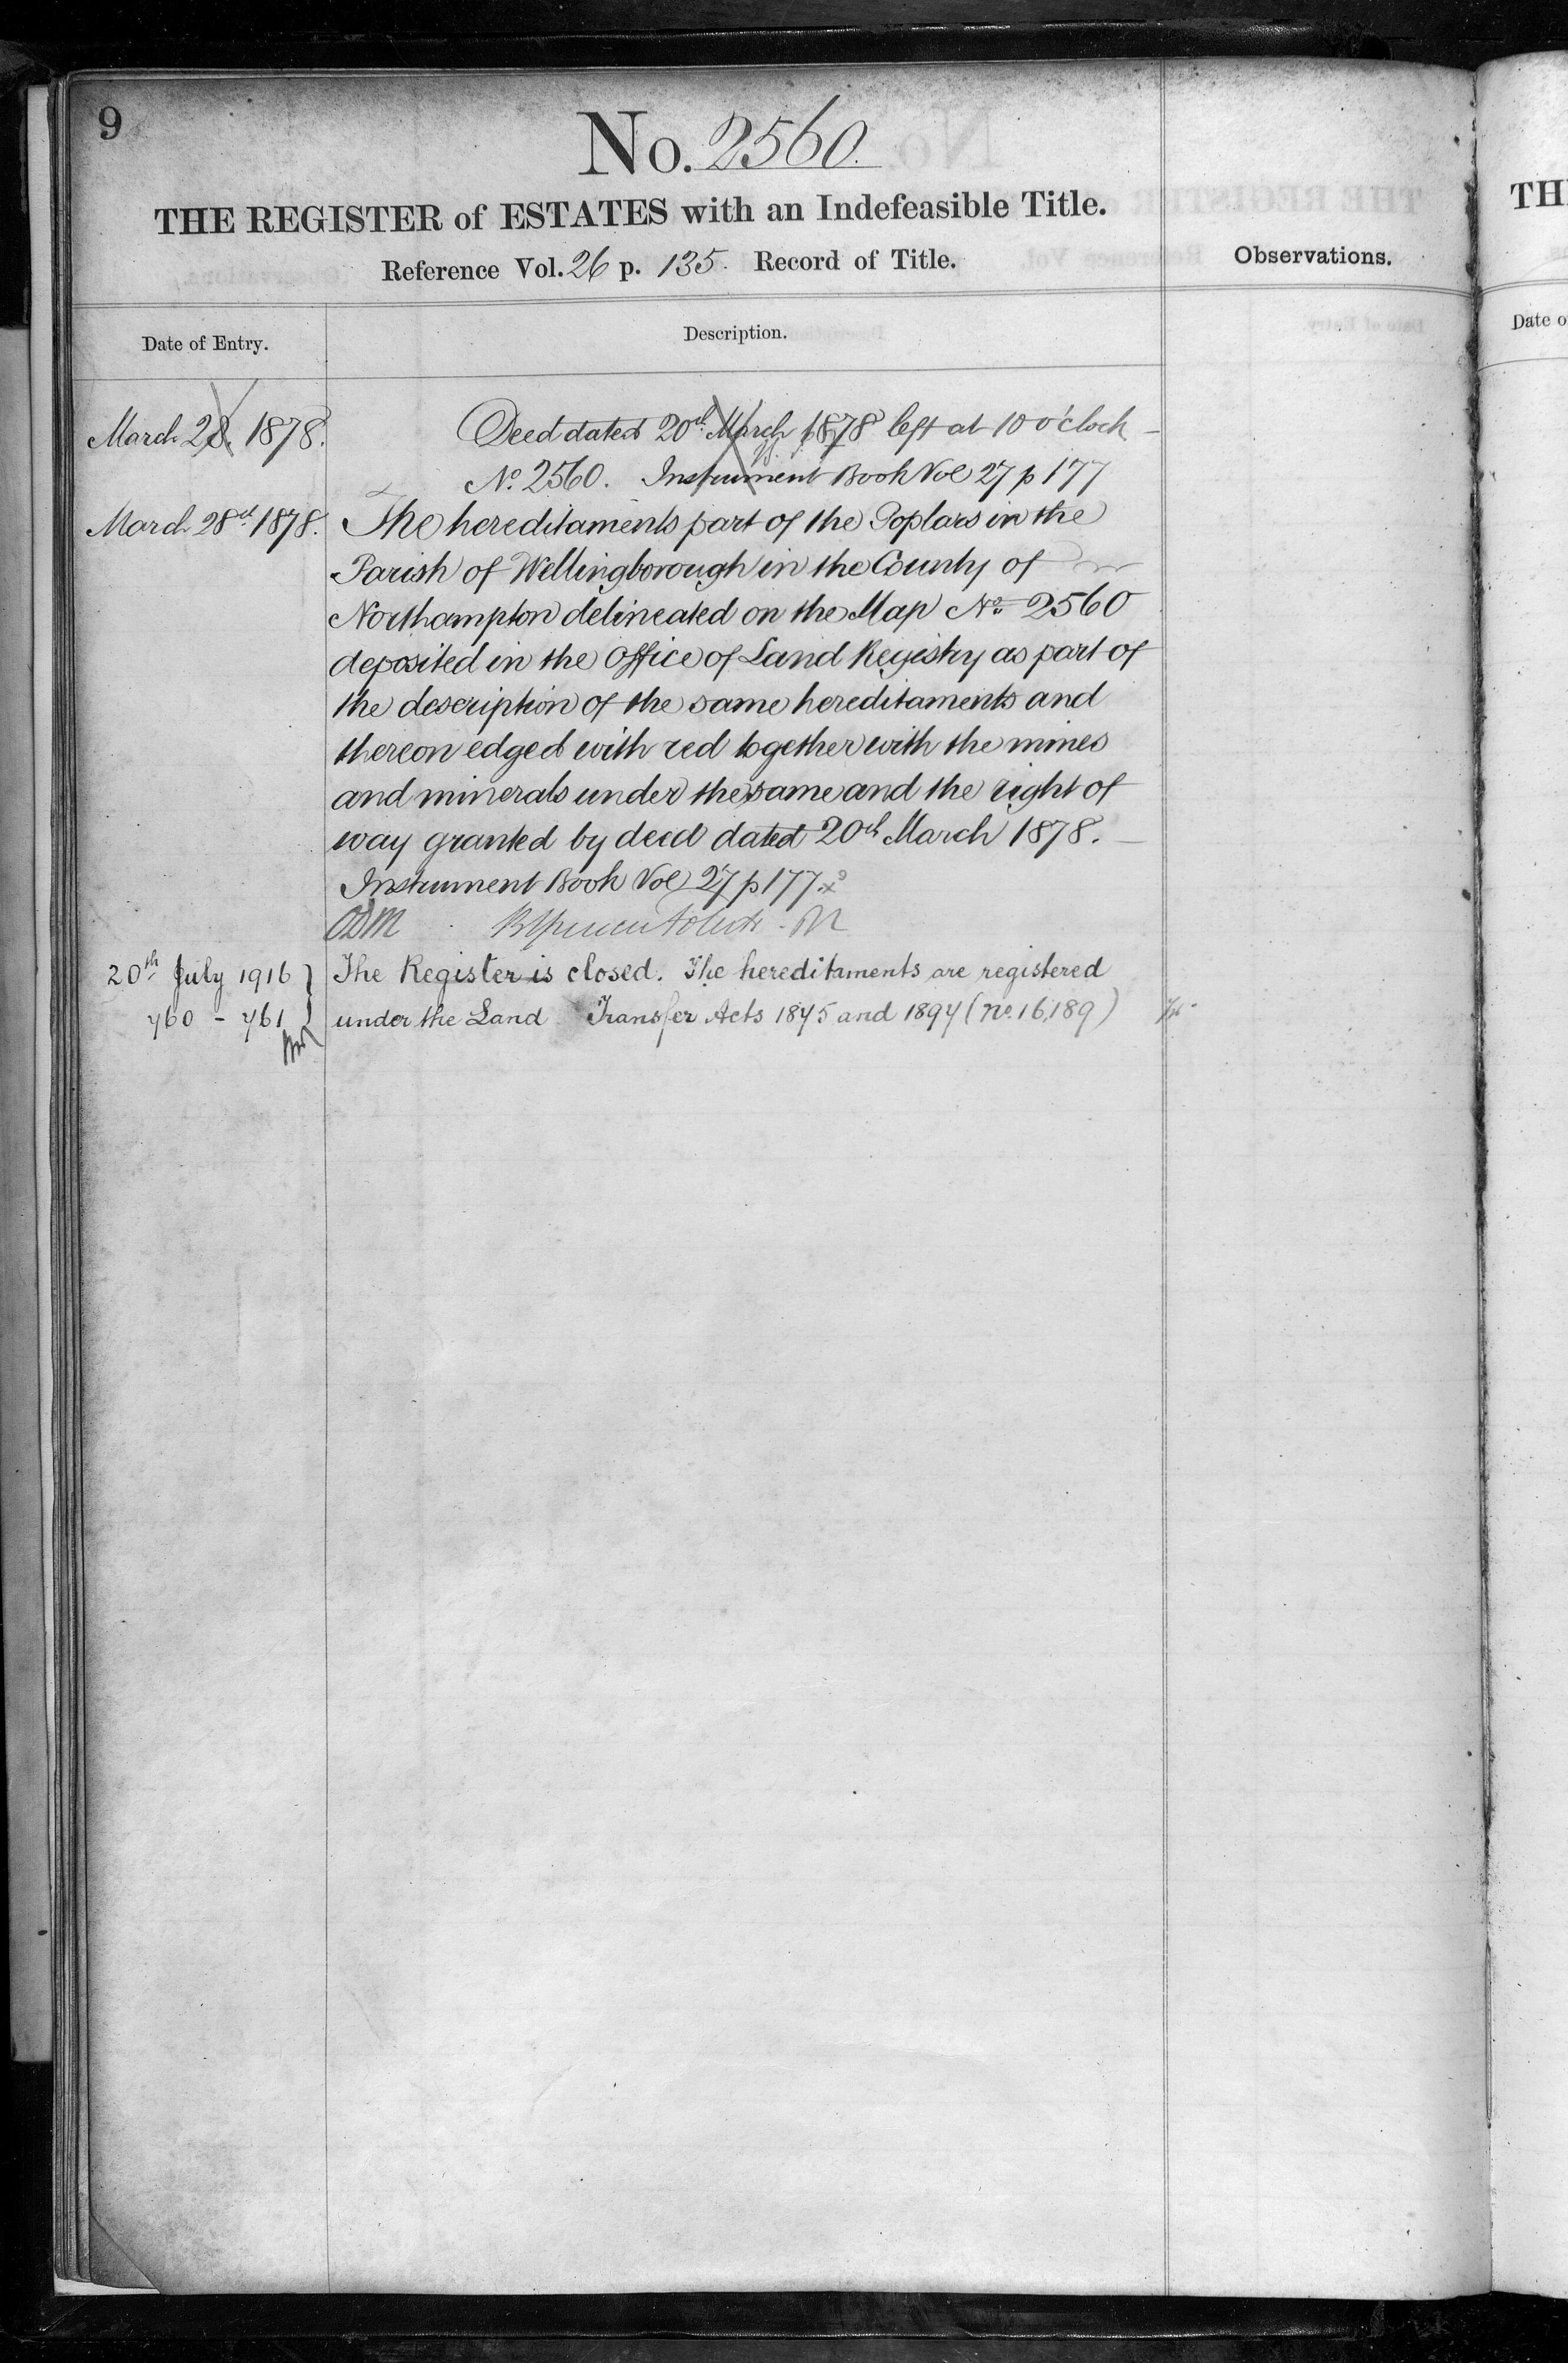 9
No. 2560.
THE REGISTER of ESTATES with an Indefeasible Title.
Reference Vol. 26 p. 135. Record of Title.
Observations.
Date of Entry.
Description.
March 28. 1878.
Deed dated 20th March 1878 left at 10 o'clock
No. 2560. Instrument Book Vol 27 p 177
March 28th 1878.
The hereditaments part of the Poplars in the
Parish of Wellingborough in the County of
Northampton delineated on the Map No. 2560
deposited in the Office of Land Registry as part of
the description of the same hereditaments and
thereon edged with red together with the mines
and minerals under the same and the right of
way granted by deed dated 20th March 1878.
Instrument Book Vol 27 p 177.
20th July 1916
760 - 761
The Register is closed. The hereditaments are registered
under the Land Transfer Acts 1875 and 1897 (No. 16,189)
TH
Date o